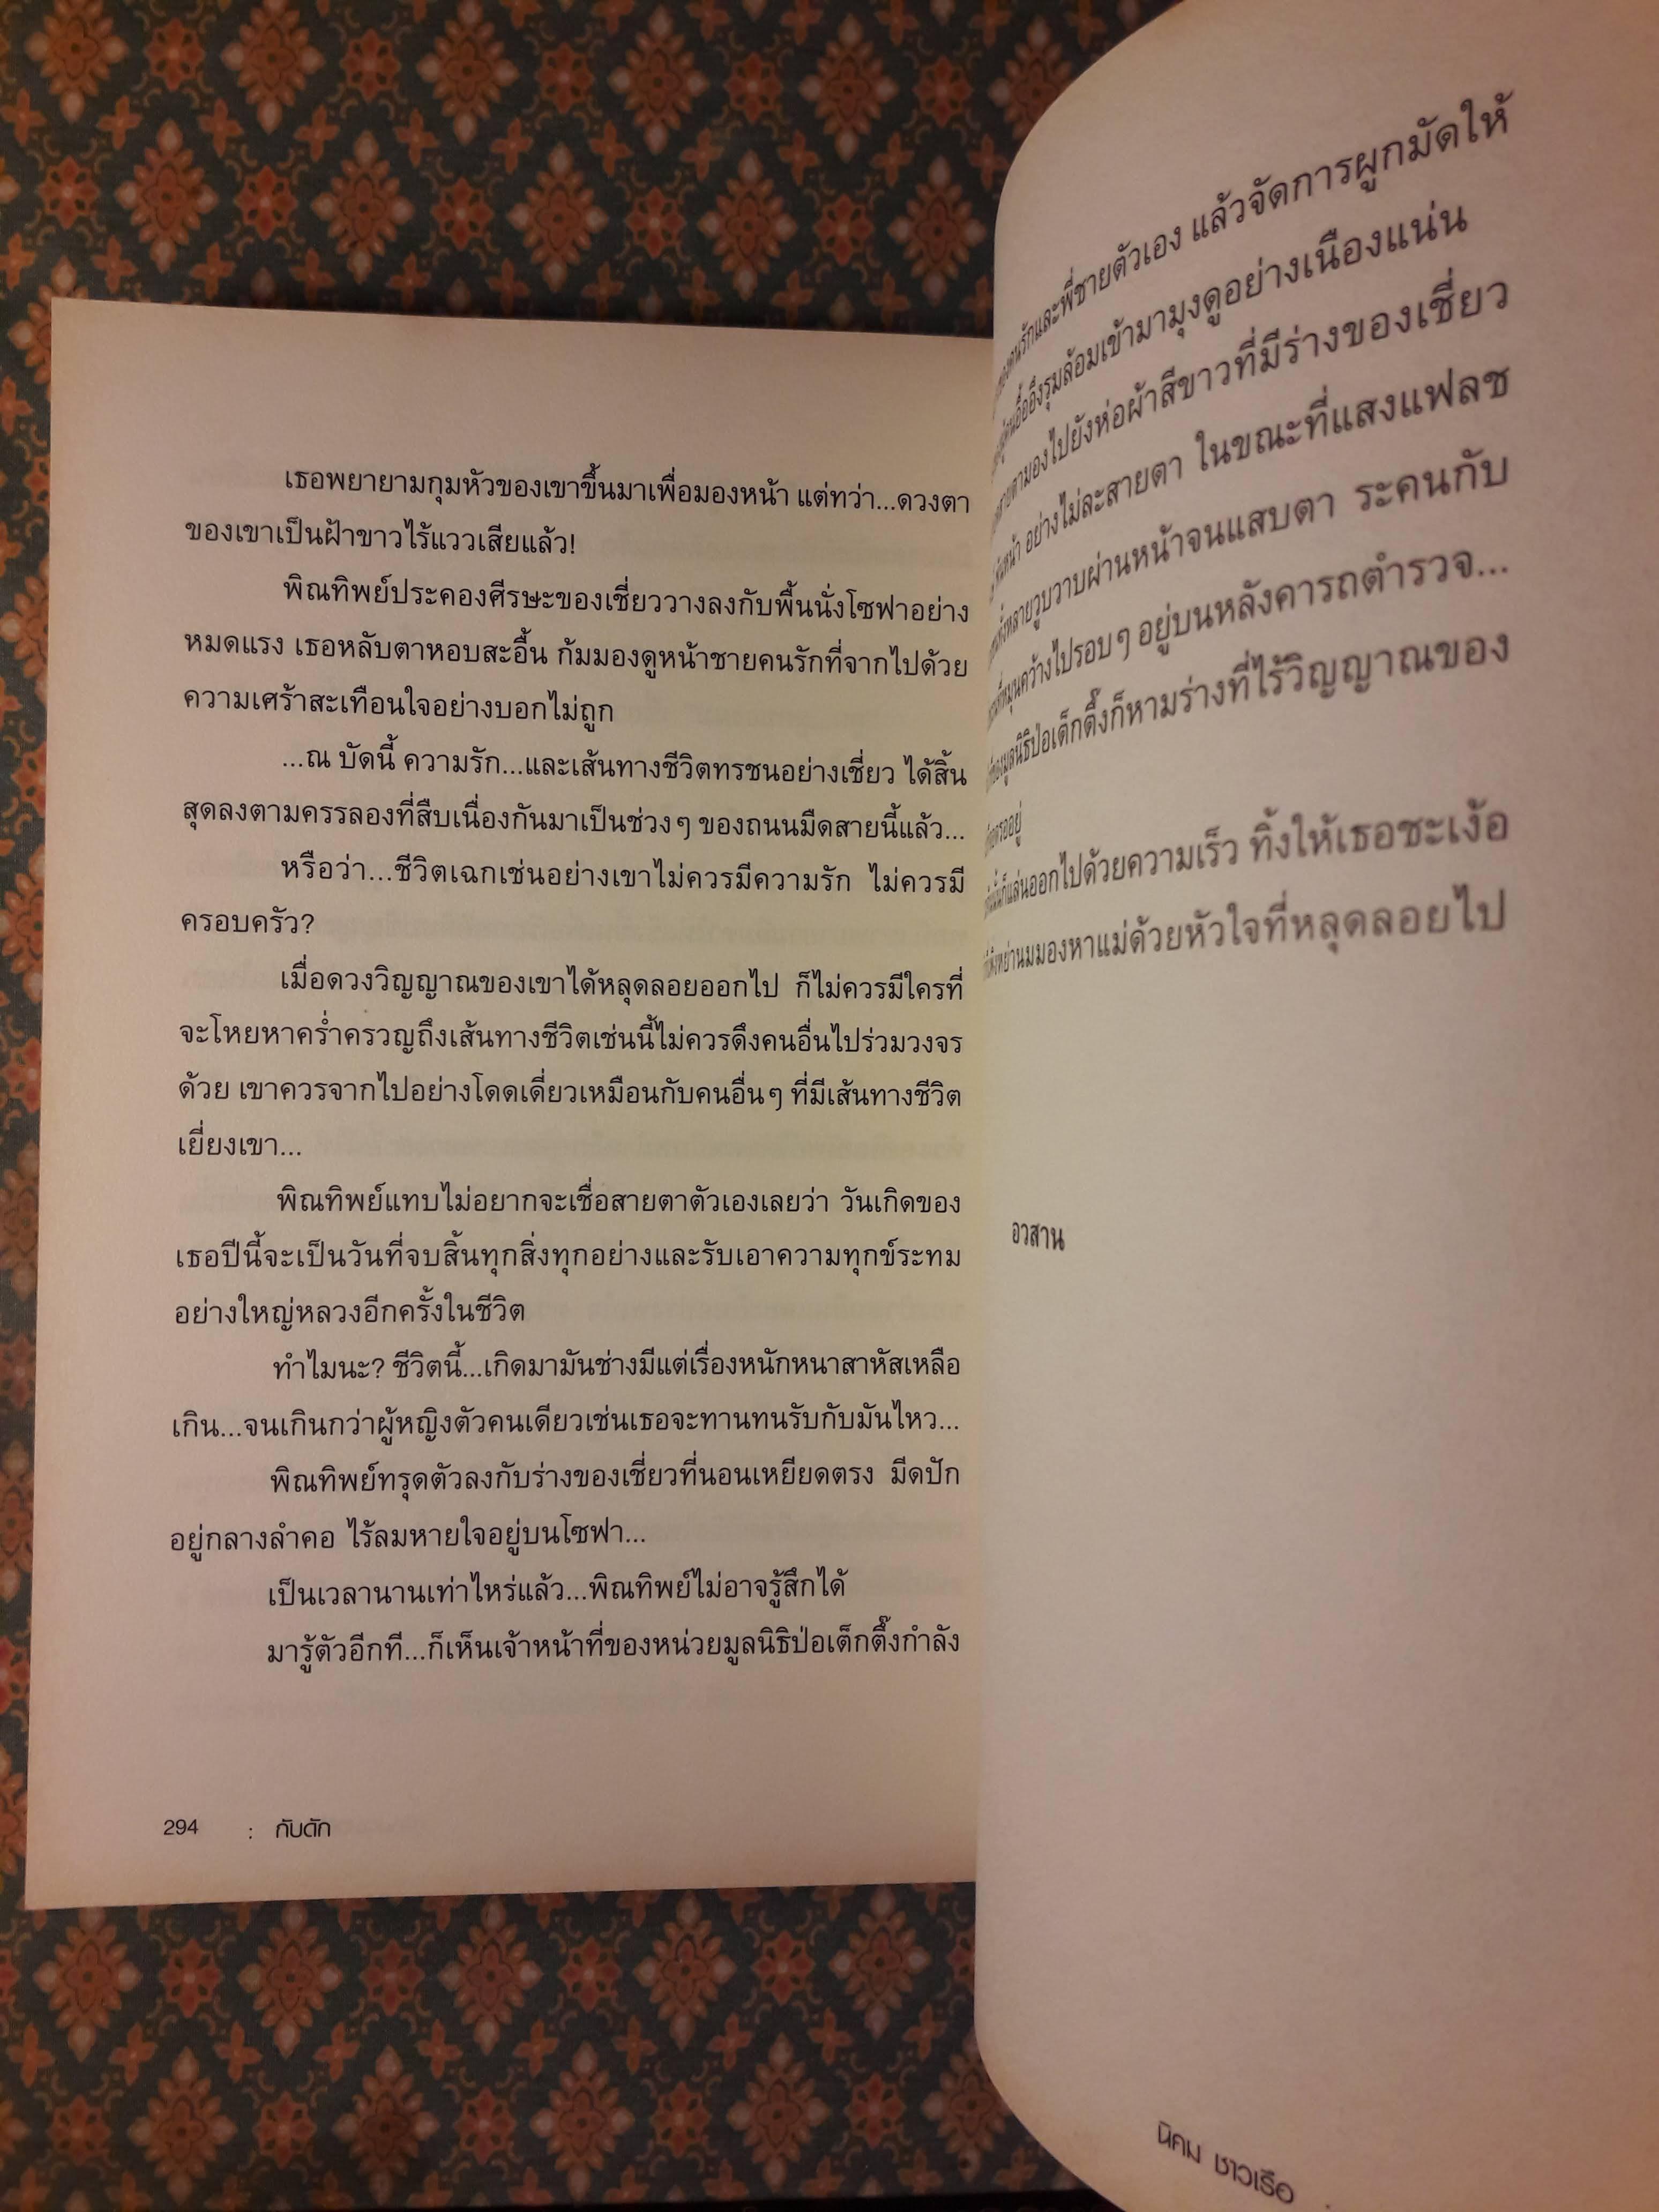 เธอพยายามกุมหัวของเขาขึ้นมาเพื่อมองหน้า แต่ทว่า...ดวงตา
ของเขาเป็นฝ้าขาวไร้แววเสียแล้ว!
พิณทิพย์ประคองศีรษะของเชี่ยววางลงกับพื้นนั่งโซฟาอย่าง
หมดแรง เธอหลับตาหอบสะอื้น ก้มมองดูหน้าชายคนรักที่จากไปด้วย
ความเศร้าสะเทือนใจอย่างบอกไม่ถูก
...ณ บัดนี้ ความรัก...และเส้นทางชีวิตทรชนอย่างเชี่ยว ได้สิ้น
สุดลงตามครรลองที่สืบเนื่องกันมาเป็นช่วงๆ ของถนนมืดสายนี้แล้ว...
หรือว่า...ชีวิตเฉกเช่นอย่างเขาไม่ควรมีความรัก ไม่ควรมี
ครอบครัว?
เมื่อดวงวิญญาณของเขาได้หลุดลอยออกไป ก็ไม่ควรมีใครที่
จะโหยหาคร่ำครวญถึงเส้นทางชีวิตเช่นนี้ไม่ควรดึงคนอื่นไปร่วมวงจร
ด้วย เขาควรจากไปอย่างโดดเดี่ยวเหมือนกับคนอื่นๆ ที่มีเส้นทางชีวิต
เยี่ยงเขา...
พิณทิพย์แทบไม่อยากจะเชื่อสายตาตัวเองเลยว่า วันเกิดของ
เธอปีนี้จะเป็นวันที่จบสิ้นทุกสิ่งทุกอย่างและรับเอาความทุกข์ระทม
อย่างใหญ่หลวงอีกครั้งในชีวิต
ทำไมนะ? ชีวิตนี้...เกิดมามันช่างมีแต่เรื่องหนักหนาสาหัสเหลือ
เกิน...จนเกินกว่าผู้หญิงตัวคนเดียวเช่นเธอจะทานทนรับกับมันไหว...
พิณทิพย์ทรุดตัวลงกับร่างของเชี่ยวที่นอนเหยียดตรง มีดปัก
อยู่กลางลำคอ ไร้ลมหายใจอยู่บนโซฟา...
เป็นเวลานานเท่าไหร่แล้ว...พิณทิพย์ไม่อาจรู้สึกได้
มารู้ตัวอีกที...ก็เห็นเจ้าหน้าที่ของหน่วยมูลนิธิป่อเต็กตึ๊งกำลัง
294 : กับดัก
คนรักและพี่ชายตัวเอง แล้วจัดการผูกมัดให้
รุมล้อมเข้ามามุงดูอย่างเนืองแน่น
มองไปยังห่อผ้าสีขาวที่มีร่างของเชี่ยว
อย่างไม่ละสายตา ในขณะที่แสงแฟลช
วูบวาบผ่านหน้าจนแสบตา ระคนกับ
ที่หมุนคว้างไปรอบๆ อยู่บนหลังคารถตำรวจ...
มูลนิธิป่อเต็กตึ๊งก็หามร่างที่ไร้วิญญาณของ
รออยู่
ก็แล่นออกไปด้วยความเร็ว ทิ้งให้เธอชะเง้อ
มองหาแม่ด้วยหัวใจที่หลุดลอยไป
อวสาน
นิคม ชาวเรือ